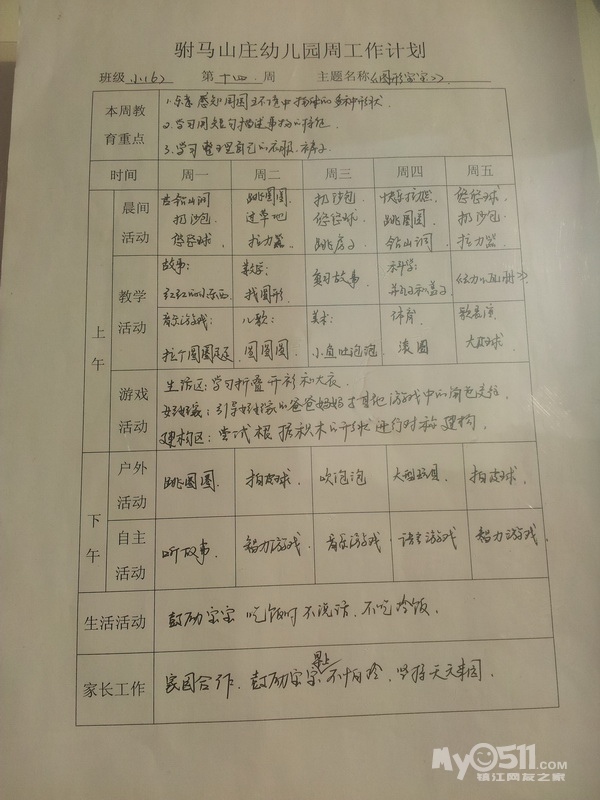 驸马山庄幼儿园周工作计划
班级 小(6) 第 十四 周 主题名称《图形宝宝》
本周教育重点
1.乐意感知周围环境中物体的多种形状
2.学习用短句描述事物的特征
3.学习整理自己的衣服、裤子
时间 周一 周二 周三 周四 周五
上午
晨间活动
钻山洞 跳圈圈 扔沙包 悠悠球
扔沙包 过草地 悠悠球 跳圈圈 扔沙包
悠悠球 拉力器 跳房子 钻山洞 拉力器
教学活动
故事: 数学: 复习故事 科学:
红红的小东西 找图形
音乐游戏: 儿歌: 美术: 体育 歌表演
拉个圆圈走走 圆圆圆 小鱼吐泡泡 滚圈 大皮球
游戏活动
生活区:学习折叠开衫和大衣
好好家:引导好好家的爸爸妈妈
建构区:尝试根据积木的形状进行对称建构
下午
户外活动 跳圈圈 拍皮球 吹泡泡 大型玩具 拍皮球
自主活动 听故事 智力游戏 音乐游戏 语言游戏 智力游戏
生活活动 鼓励宝宝吃饭时不说话、不吃冷饭
早上
家长工作 家园合作、鼓励宝宝不怕冷,坚持天天来园
My0511.com
镇江网友之家